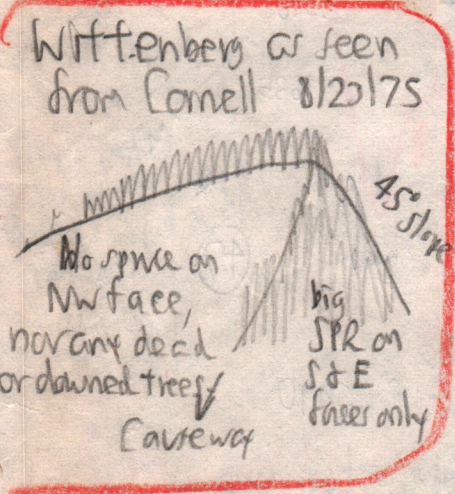 Wittenberg as seen
from Cornell 8/23/75
45° slope
No spruce on
NW face,
nor any dead
or downed trees
big
SPR on
S & E
faces only
Causeway